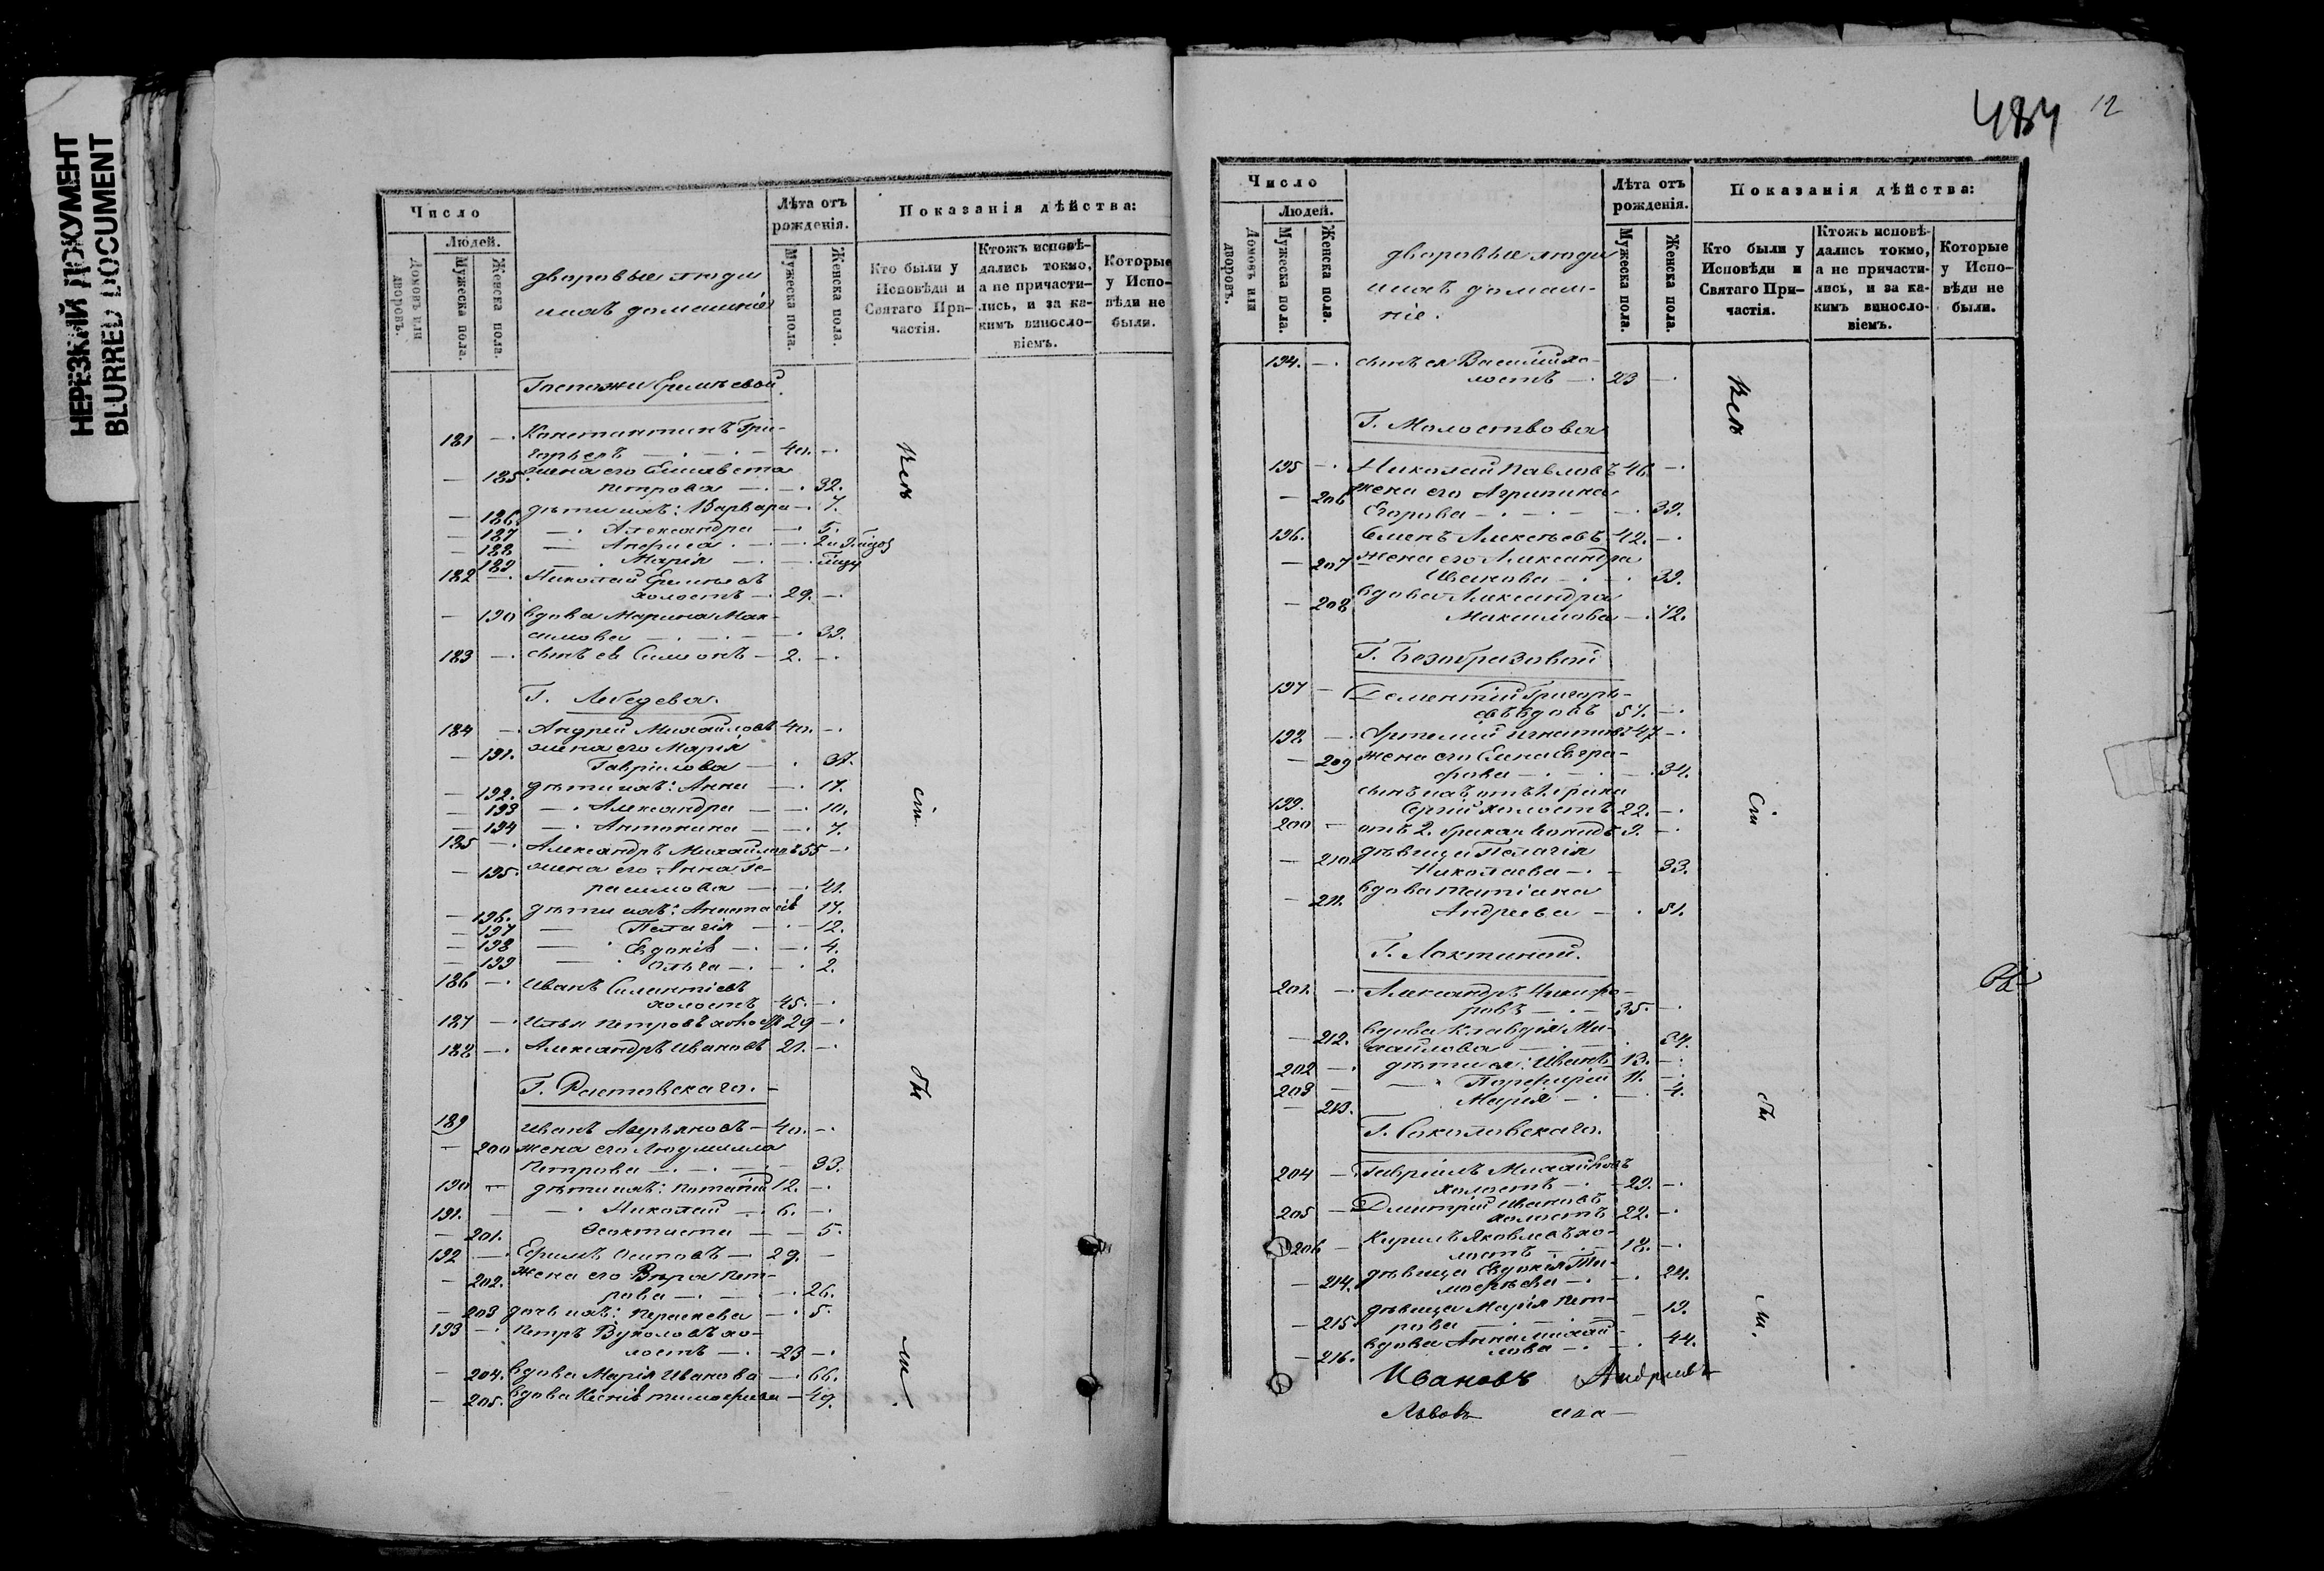 НЕРЕЗКИЙ ДОКУМЕНТ
BLURRED DOCUMENT
Число
Людей.
Домовъ или дворовъ.
Мужеска пола.
Женска пола.
дворовые люди
ихъ домашніе
Лѣта отъ рожденія.
Мужеска пола.
Женска пола.
Показанія дѣйства:
Кто были у Исповѣди и Святаго При-частія.
Ктожъ исповѣ-дались токмо, а не причасти-лись, и за ка-кимъ винословіемъ.
Которые у Испо-вѣди не были.
Госпожи Еремѣевой
181 — Константинъ Гри-
горьевъ — 40. —
— 185. жена его Елисавета
Петрова — 32.
— 186. дѣти ихъ: Варвара — 7.
— 187 — Александра — 5.
— 188 —
— 189 — Марія —
182 — Николай Еремѣевъ
холостъ — 29. —
— 190 вдова Марина Мак-
симова — 39.
183 — сынъ ея Симеонъ — 2. —
Г. Лебедева.
184 — Андрей Михайловъ 40. —
— 191. жена его Марія
Гаврилова — 37.
— 192. дѣти ихъ: Анна — 17.
— 193 — Александра — 10.
— 194 — Антонина — 7.
185 — Александръ Михайловъ 55 —
— 195. жена его Анна Ге-
расимова — 41.
— 196. дѣти ихъ: Анастасія 17.
— 197 — Пелагія — 12.
— 198 — Евдокія — 4.
— 199 — Ольга — 2.
186 — Иванъ Силантіевъ
холостъ 45. —
187 — Илья Петровъ холостъ 29 —
188 — Александръ Ивановъ 21. —
Г. Ростовскаго. —
189 Иванъ Аверьяновъ — 40. —
— 200 жена его Людмилла
Петрова — 33.
190 — дѣти ихъ: Потапій 12. —
191. — Николай — 6. —
— 201. Ѳеоктиста — 5.
192 — Ефимъ Осиповъ — 29. —
— 202. жена его Вѣра Пет-
рова — 26.
— 203 дочь ихъ: Параскева — 5.
193 — Петръ Вуколовъ хо-
лостъ — 23 —
— 204. вдова Марія Иванова — 66.
— 205. вдова Ксенія Тимофеева — 49.
484 12
Число
Людей.
Домовъ или дворовъ.
Мужеска пола.
Женска пола.
дворовые люди
ихъ домаш-
ніе.
Лѣта отъ рожденія.
Мужеска пола.
Женска пола.
Показанія дѣйства:
Кто были у Исповѣди и Святаго При-частія.
Ктожъ исповѣ-дались токмо, а не причасти-лись, и за ка-кимъ винословіемъ.
Которые у Испо-вѣди не были.
194. — сынъ ея Василій хо-
лостъ — 23 —
Г. Молоствова
195 — Николай Павловъ 46. —
— 206 жена его Агрипина
Егорова — 39.
196. Семенъ Алексѣевъ 42. —
— 207 жена его Александра
Иванова — 39.
— 208 вдова Александра
Максимова — 72.
Г. Безобразовой
197 — Дементій Григорь-
евъ вдовъ 57. —
198 — Артемій Игнатьевъ 47 —
— 209 жена его Елена Евгра-
фова — 34.
199. сынъ ихъ отъ 1 брака
Сергій холостъ 22. —
200 — отъ 2. брака Леонидъ 9. —
— 210. дѣвица Пелагія
Николаева — 33.
— 211. вдова Татіана
Андреева — 51.
Г. Лактиной.
201. — Александръ Никифо-
ровъ — 35. —
— 212. вдова Клавдія Ми-
хайлова —
202 — дѣти ея: Иванъ 13. —
203 — Порфирій 11. —
— 213. Марія — 4.
Г. Соколовскаго.
204 — Гавріилъ Михайловъ
холостъ — 29. —
205 — Дмитрій Ивановъ
холостъ 22. —
206 — Кирилъ Яковлевъ хо-
лостъ — 18. —
— 214. дѣвица Евдокія Ти-
мофеева — 24.
— 215. дѣвица Марія Пет-
рова — 19.
— 216. вдова Анна Михай-
лова — 44.
Ивановъ Андреевъ
Львовъ